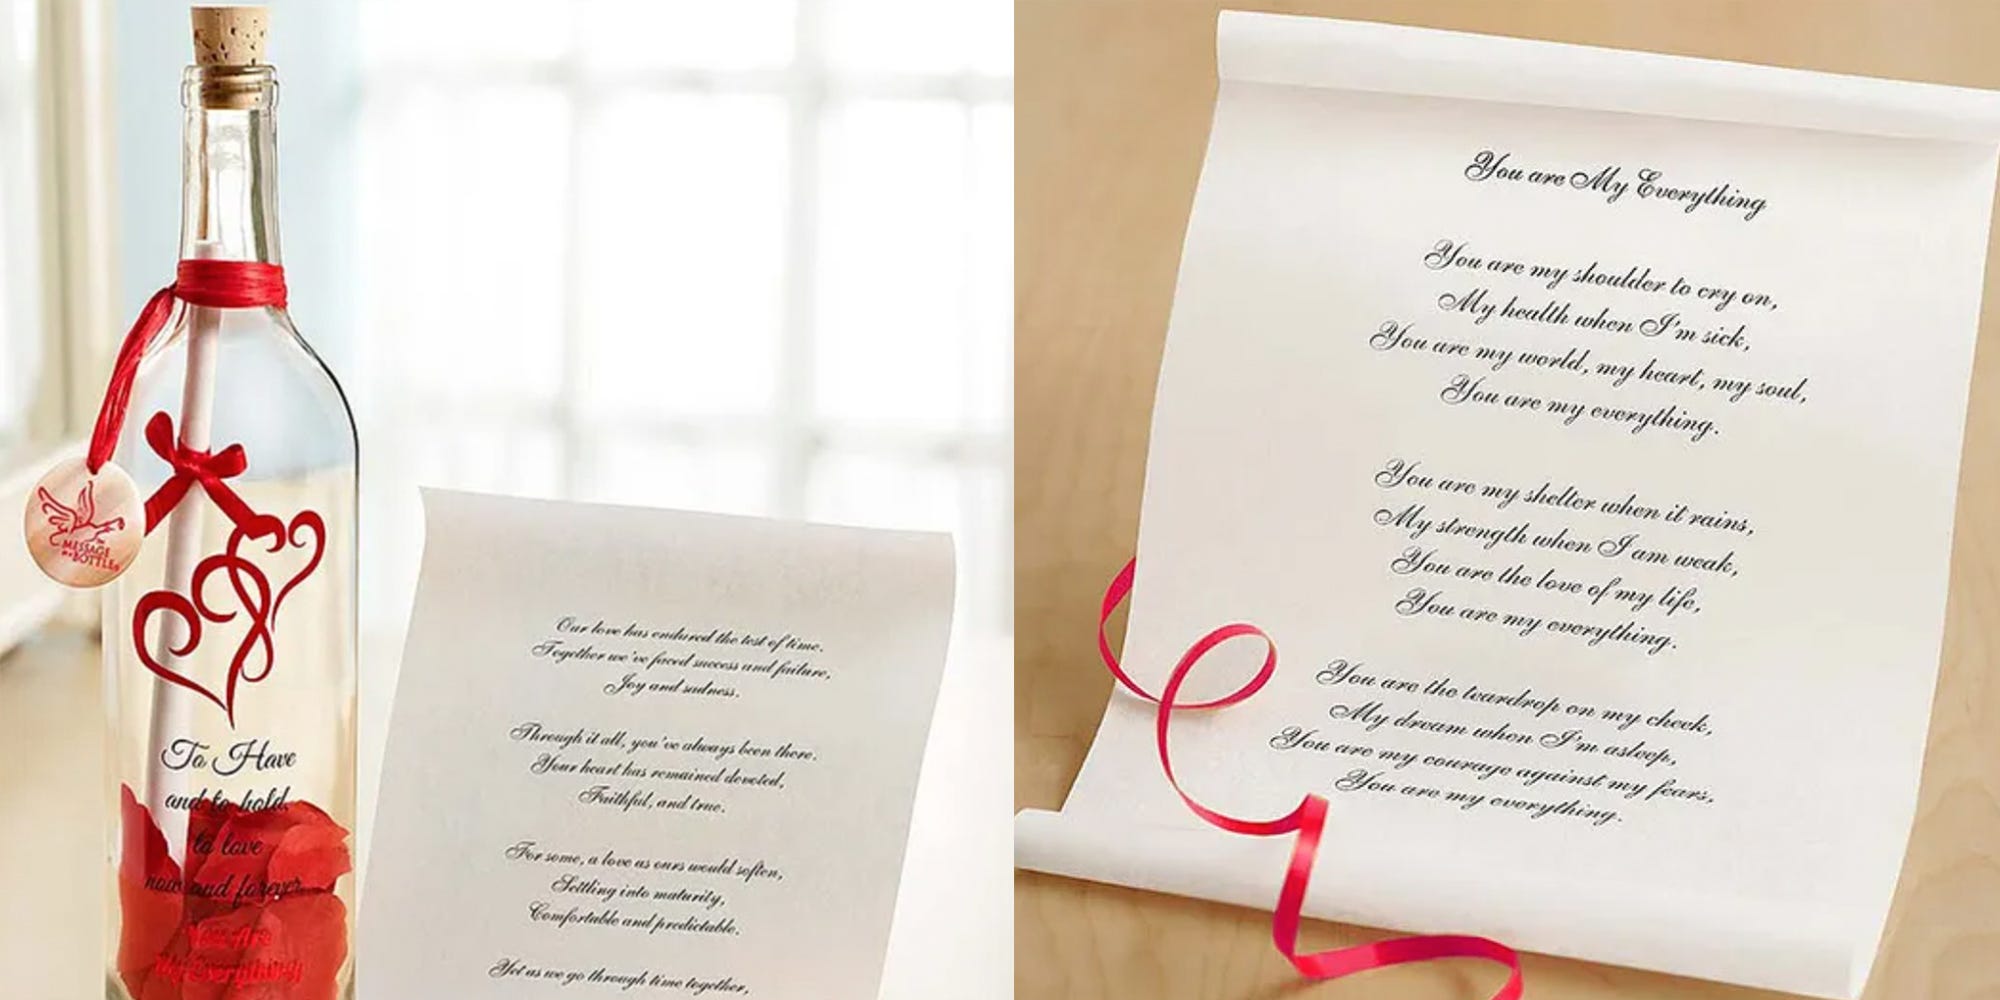 MESSAGE
IN A
BOTTLE
To Have
and to hold,
to love
now and forever
You Are
My Everything
Our love has endured the test of time.
Together we've faced success and failure,
Joy and sadness.
Through it all, you've always been there.
Your heart has remained devoted,
Faithful, and true.
For some, a love as ours would soften,
Settling into maturity,
Comfortable and predictable.
Yet as we go through time together,
You are My Everything
You are my shoulder to cry on,
My health when I'm sick,
You are my world, my heart, my soul,
You are my everything.
You are my shelter when it rains,
My strength when I am weak,
You are the love of my life,
You are my everything.
You are the teardrop on my cheek,
My dream when I'm asleep,
You are my courage against my fears,
You are my everything.